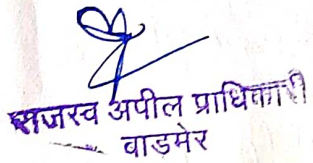 राजस्व अपील प्राधिकारी
वाडमेर